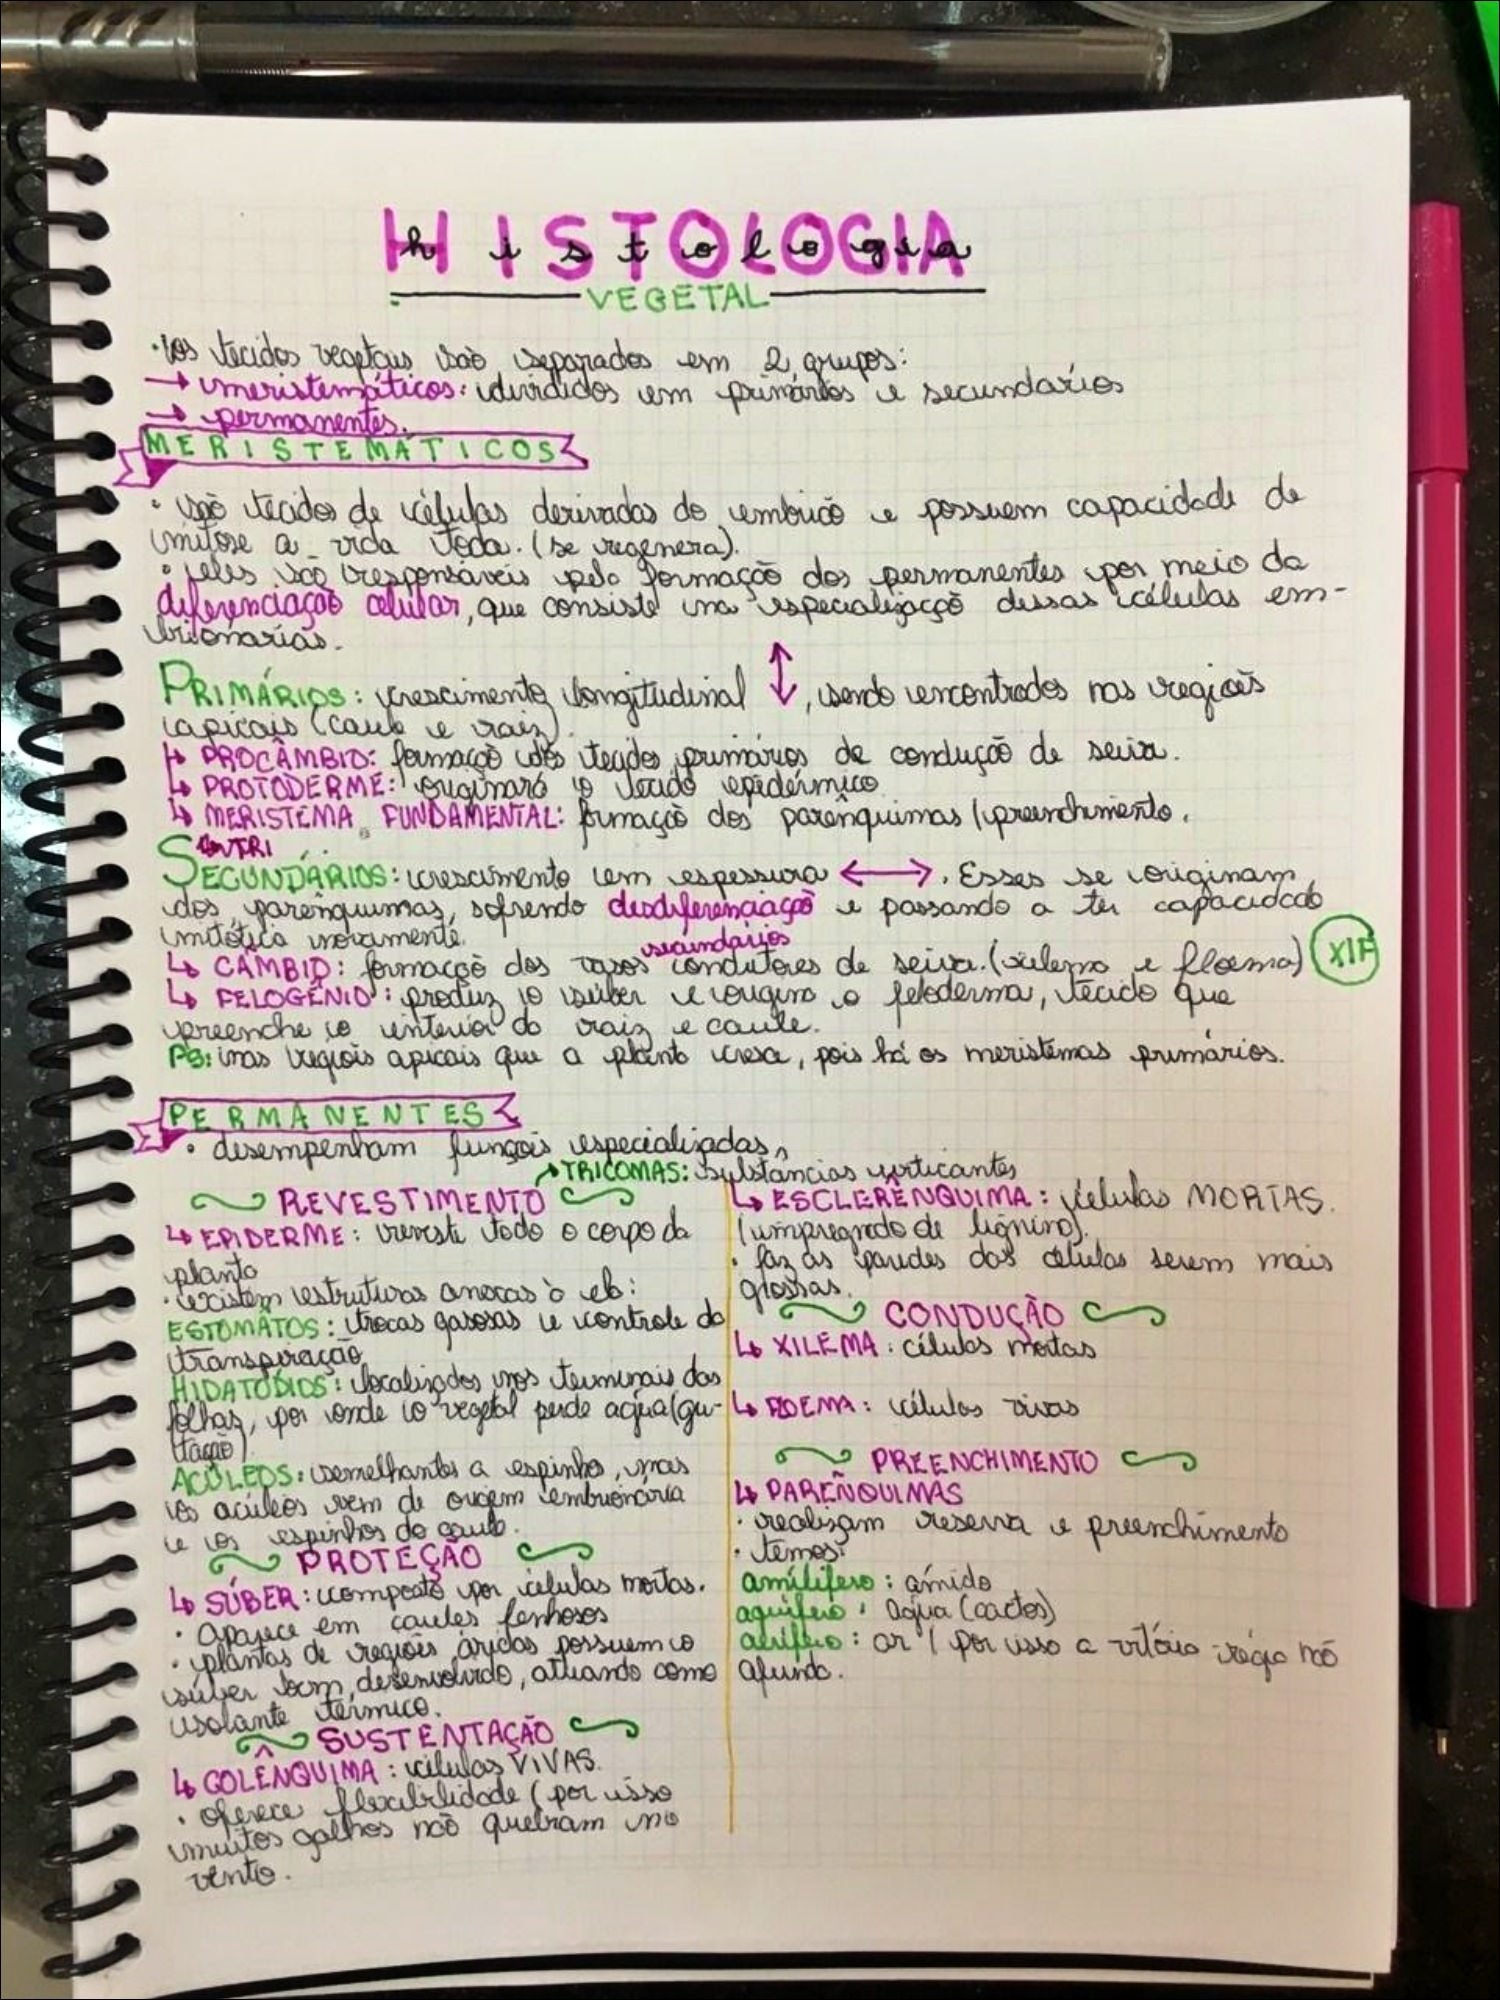 HISTOLOGIA
histologia
VEGETAL
• Os tecidos vegetais são separados em 2 grupos:
→ meristemáticos: divididos em primários e secundarios
→ permanentes.
MERISTEMÁTICOS
• são tecidos de células derivadas do embrião e possuem capacidade de
mitose a vida toda. (se regenera).
• eles são responsáveis pela formação dos permanentes por meio da
diferenciação celular, que consiste na especialização dessas células em-
brionarias.
PRIMÁRIOS: crescimento longitudinal ↕, sendo encontrados nas regiões
apicais (caule e raiz).
↳ PROCÂMBIO: formação dos tecidos primários de condução de seiva.
↳ PROTODERME: originará o tecido epidérmico
↳ MERISTEMA FUNDAMENTAL: formação dos parênquimas / preenchimento.
SECUNDÁRIOS: crescimento em espessura ↔. Esses se originam
dos parênquimas, sofrendo desdiferenciação e passando a ter capacidade
mitótica novamente.
secundários
↳ CÂMBIO: formação dos vasos condutores de seiva. (xilema e floema) XIF
↳ FELOGÊNIO: produz o súber e origina o feloderma, tecido que
preenche o interior da raiz e caule.
PS: nas regiões apicais que a planta cresce, pois há os meristemas primários.
PERMANENTES
• desempenham funções especializadas,
→ TRICOMAS: substâncias urticantes
REVESTIMENTO
↳ EPIDERME: reveste todo o corpo da
planta
• existem estruturas anexas à ela:
ESTÔMATOS: trocas gasosas e controle da
transpiração
HIDATÓDIOS: localizados nos terminais das
folhas, por onde o vegetal perde água (gu-
tação)
ACÚLEOS: semelhantes a espinho, mas
os acúleos vem de origem embrionária
e os espinhos do caule.
PROTEÇÃO
↳ SÚBER: composto por células mortas.
• aparece em caules lenhosos
• plantas de regiões aridas possuem o
súber bem desenvolvido, atuando como
isolante térmico.
SUSTENTAÇÃO
↳ COLÊNQUIMA: células VIVAS.
• oferece flexibilidade (por isso
muitos galhos não quebram no
vento.
↳ ESCLERÊNQUIMA: células MORTAS.
(impregnado de lignina).
• faz as paredes das células serem mais
grossas.
CONDUÇÃO
↳ XILEMA: células mortas
↳ FLOEMA: células vivas
PREENCHIMENTO
↳ PARÊNQUIMAS
• realizam reserva e preenchimento
• temos:
amilífero: amido
aquífero: água (cactos)
aerífero: ar / por isso a vitória régia não
afunda.